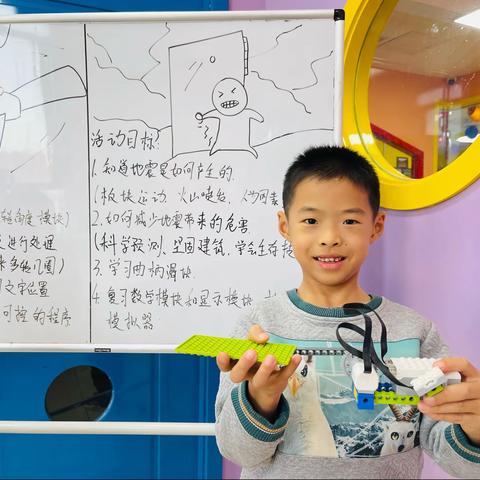 活动目标:
1. 知道地震是如何产生的.
(板块运动、火山喷发、人为因素
2. 如何减少地震带来的危害.
(科学预测、坚固建筑、学会生存技
3. 学习曲柄滑块
4. 复习数学模块和显示模块
模拟器
角度模块)
进行处理
来多转几圈)
文字位置
可控的程序